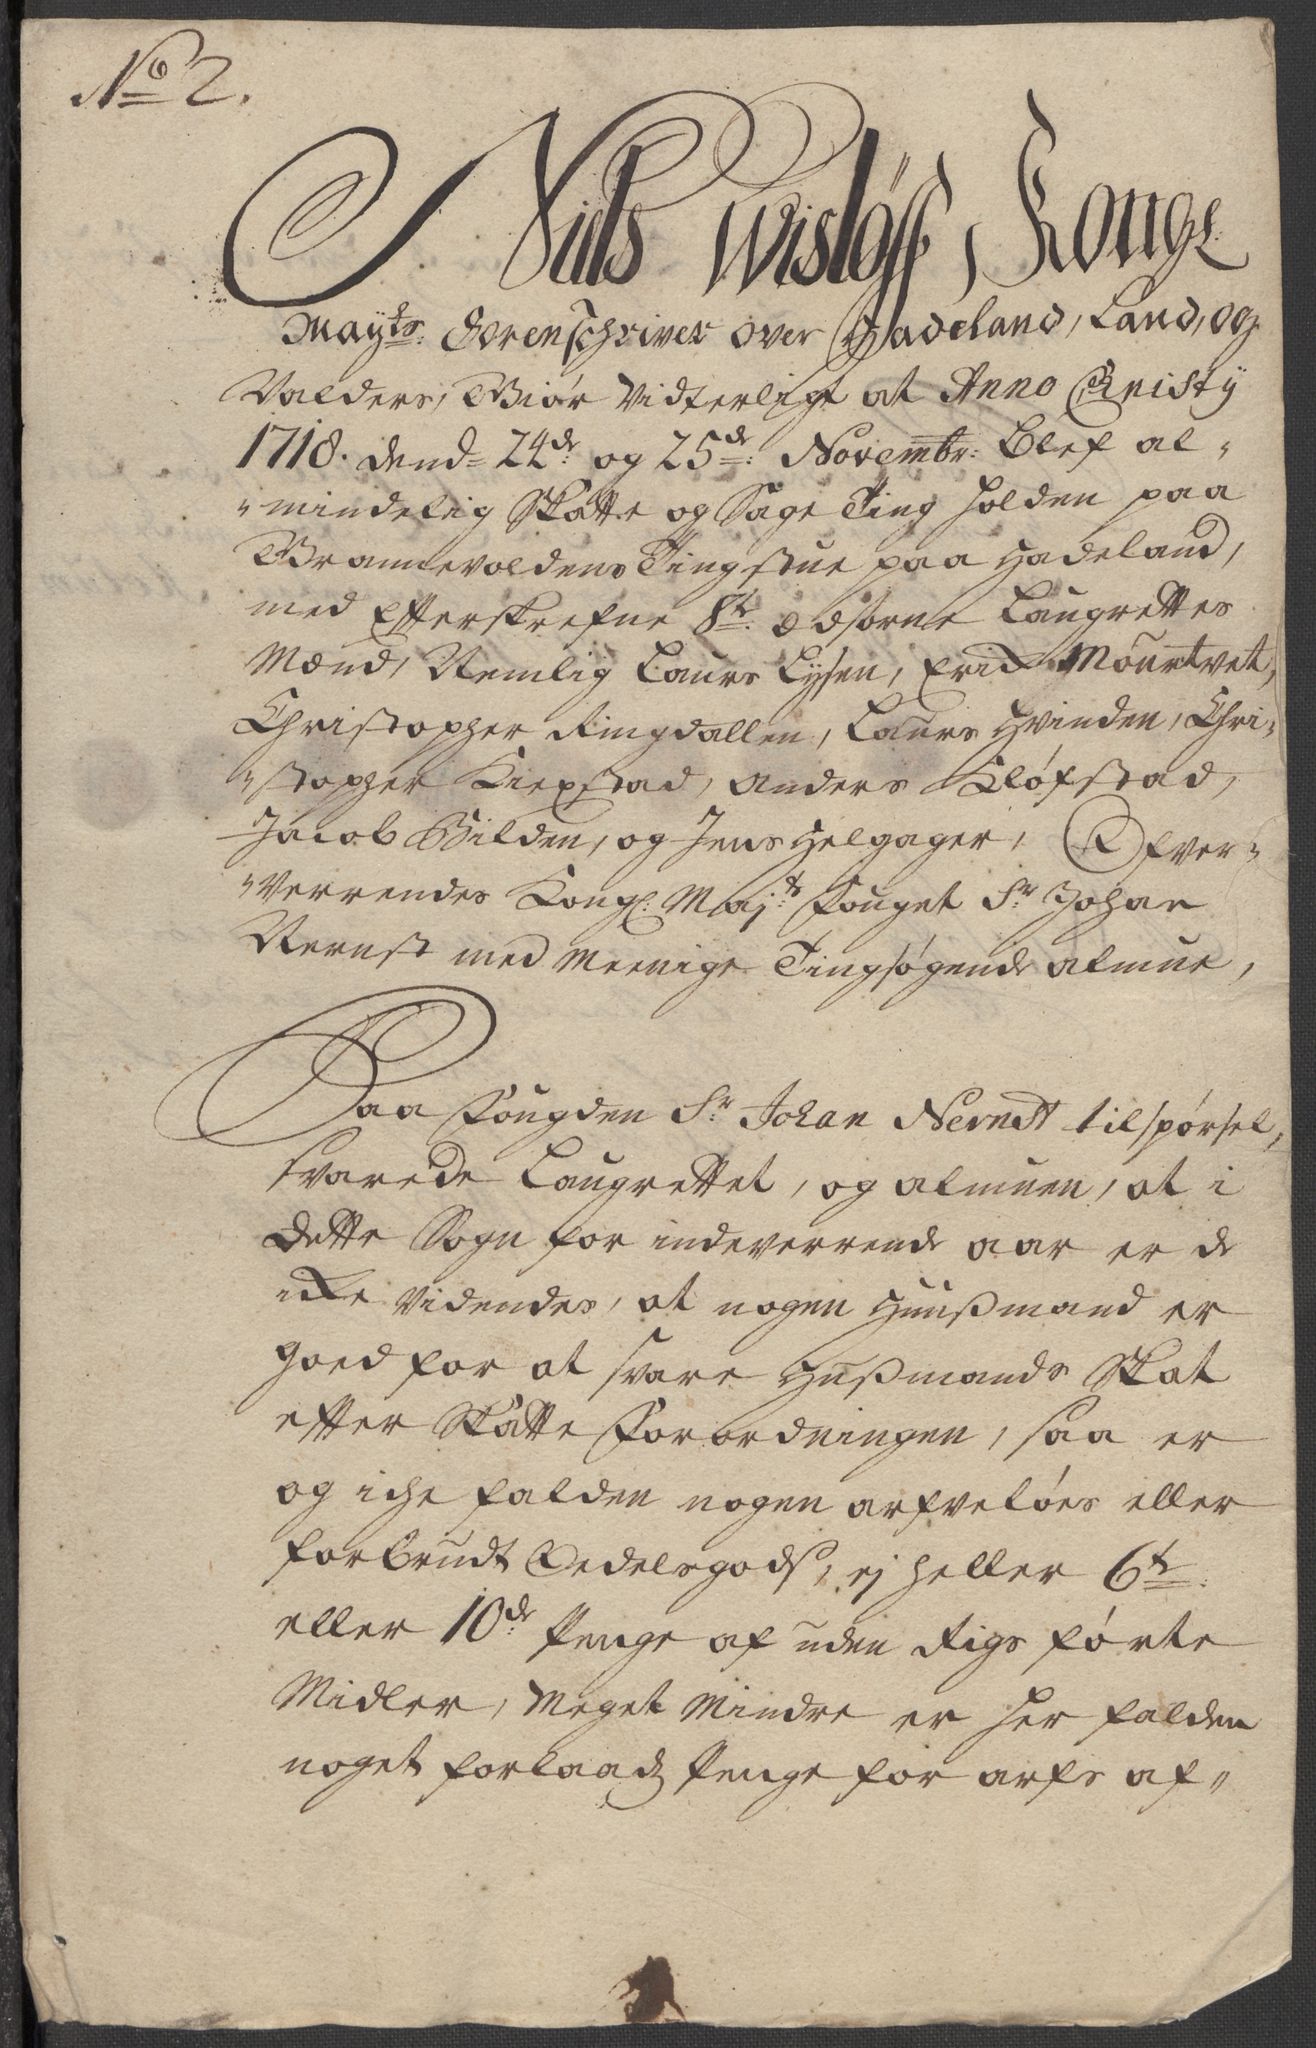 No 2.
Niels Wisløff, Konge
Mayts: Sorenschriver over Hadeland, Land, og
Valders, Giør Vidterligt at Anno Christy
1718. dend= 24de og 25de: Novembr: blef al-
-mindelig Skatte og Sage Ting holden paa
Grannevoldens Tingstue paa Hadeland,
med Efterskrefne 8te Edsorne Laugrettes
Mænd, Nemlig Laurs Lysen, Erich
Christopher Ringdallen, Laurs Hvinden, Chri-
-stopher Kiexstad, Anders Kløfstad,
Jacob Hilden, og Jens Helgager, Ofver-
-verrendes Kongl: Maj:ts fouget Sr Johan
Nernst med Meenige Tingsøgende almue,
Paa Fougden Sr: Johan Nernst tilspørsel,
svarede Laugrettet, og almuen, at i
dette Sogn for indeverrende aar er de
icke videndes, at nogen Huusmand er
goed for at svare Husmands Skat
efter Skatte Forordningen, saa er
og iche falden nogen arfveløes eller
forbrudt Oedelsgods, ej heller 6te
eller 10de Penge af uden Rigs førte
Midler, Meget Mindre er her falden
noget forlaads Penge for arfs af-